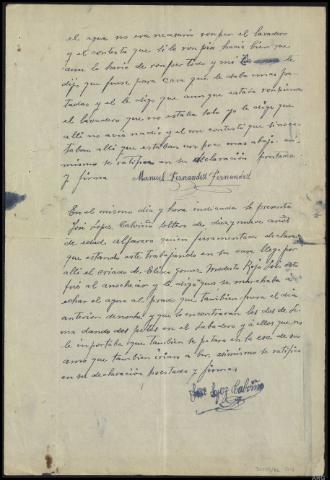 el agua no era necesario romper el lavadero
y el contesto que si lo rompia hacia bien que
aun lo haria de romper todo y mi
dijo que fuese para casa que le daba unas pa
tadas y el le dije que aunque estaba rompiendo
el lavadero que no estaba solo yo le dige que
alli no avia nadie y el me contesto que si nece
taban alli que estaban un poco mas abajo asi
mismo se ratifica en su declaración prestada
y firma Manuel Fernandez Fernandez
En el mismo dia y hora indicada se presenta
José Lopez Cabciño soltero de diez y nueve años
de edad, alfarero quien juramentado declara
que estando este trabajando en su casa llego por
alli el criado de Elisa Gomez Modesto Rojo
fué al anochecer y le dijo que se marchaba a
echar el agua al prado que tambien fuera el dia
anterior y que le encontraran los de
dando dos palos en el labadero y a ellos que no
le importaba que tambien se petara en la era de su
amo que tambien irian a ber, asimismo se ratifica
en su declaración prestada y firma
José Lopez